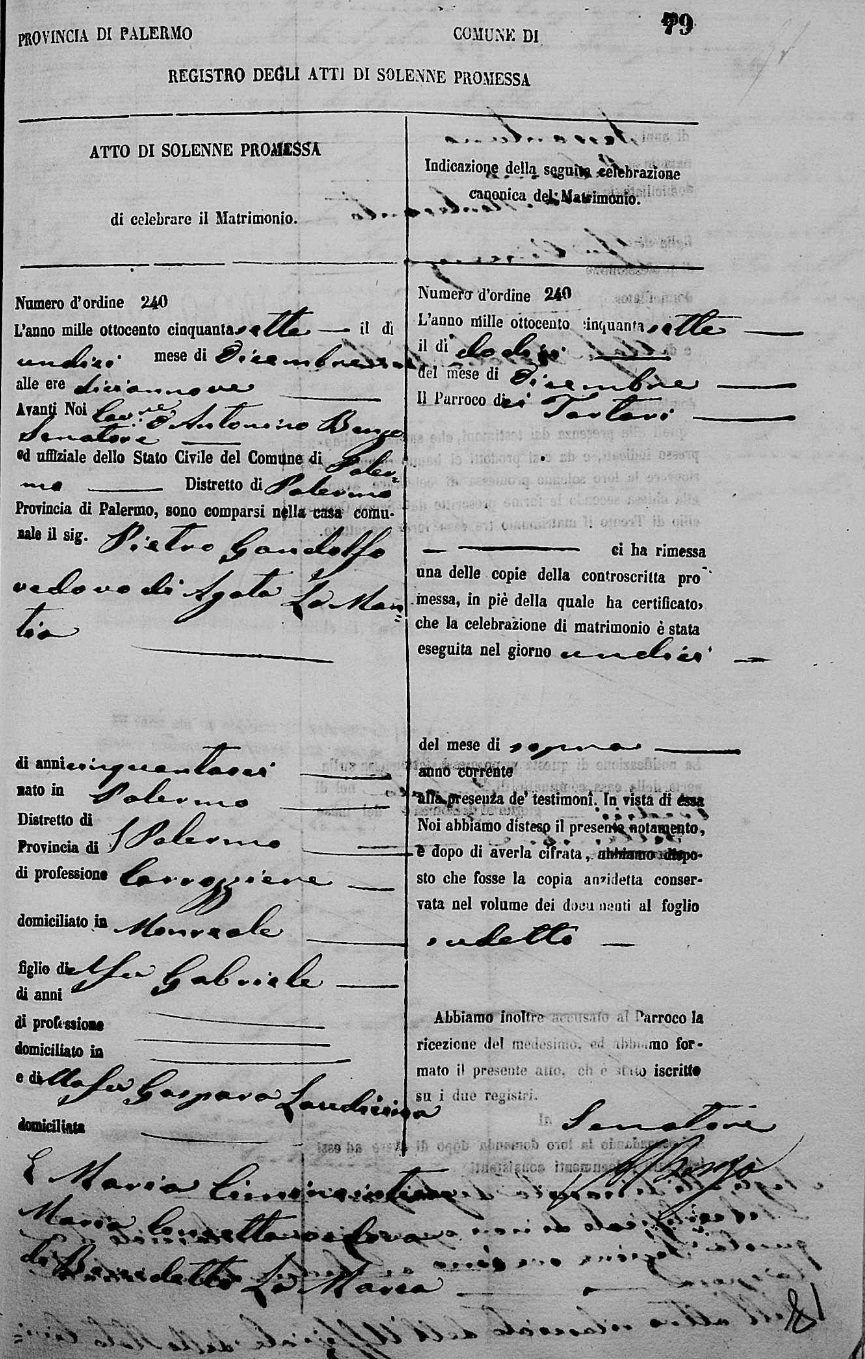 79
PROVINCIA DI PALERMO
COMUNE DI
REGISTRO DEGLI ATTI DI SOLENNE PROMESSA
ATTO DI SOLENNE PROMESSA
di celebrare il Matrimonio.
Numero d'ordine 240
L'anno mille ottocento cinquantasette il dì
undici mese di Dicembre
alle ore diciannove
Avanti Noi Cav. D. Antonino Bongo
Senatore
ed uffiziale dello Stato Civile del Comune di Paler-
mo Distretto di Palermo
Provincia di Palermo, sono comparsi nella casa comu-
nale il sig. Pietro Gandolfo
vedovo di Agata La Man=
tia
di anni cinquantasei
nato in Palermo
Distretto di
Provincia di Palermo
di professione Carrozziere
domiciliato in Monreale
figlio di fu Gabriele
di anni
di professione
domiciliato in
e di fu Gaspara Laudicina
domiciliata
E Maria
Maria Concetta vedova
di Benedetto La Marca
Indicazione della seguita celebrazione
canonica del Matrimonio.
Numero d'ordine 240
L'anno mille ottocento cinquantasette
il dì dodici
del mese di Dicembre
Il Parroco di Tartari
ci ha rimessa
una delle copie della controscritta pro-
messa, in piè della quale ha certificato,
che la celebrazione di matrimonio è stata
eseguita nel giorno undici
del mese di sopra
anno corrente
alla presenza de' testimoni. In vista di essa
Noi abbiamo disteso il presente notamento,
e dopo di averla cifrata, abbiamo dispo-
sto che fosse la copia anzidetta conser-
vata nel volume dei documenti al foglio
sudetto
Abbiamo inoltre accusato al Parroco la
ricezione del medesimo, ed abbiamo for-
mato il presente atto, ch è stato iscritto
su i due registri.
Senatore